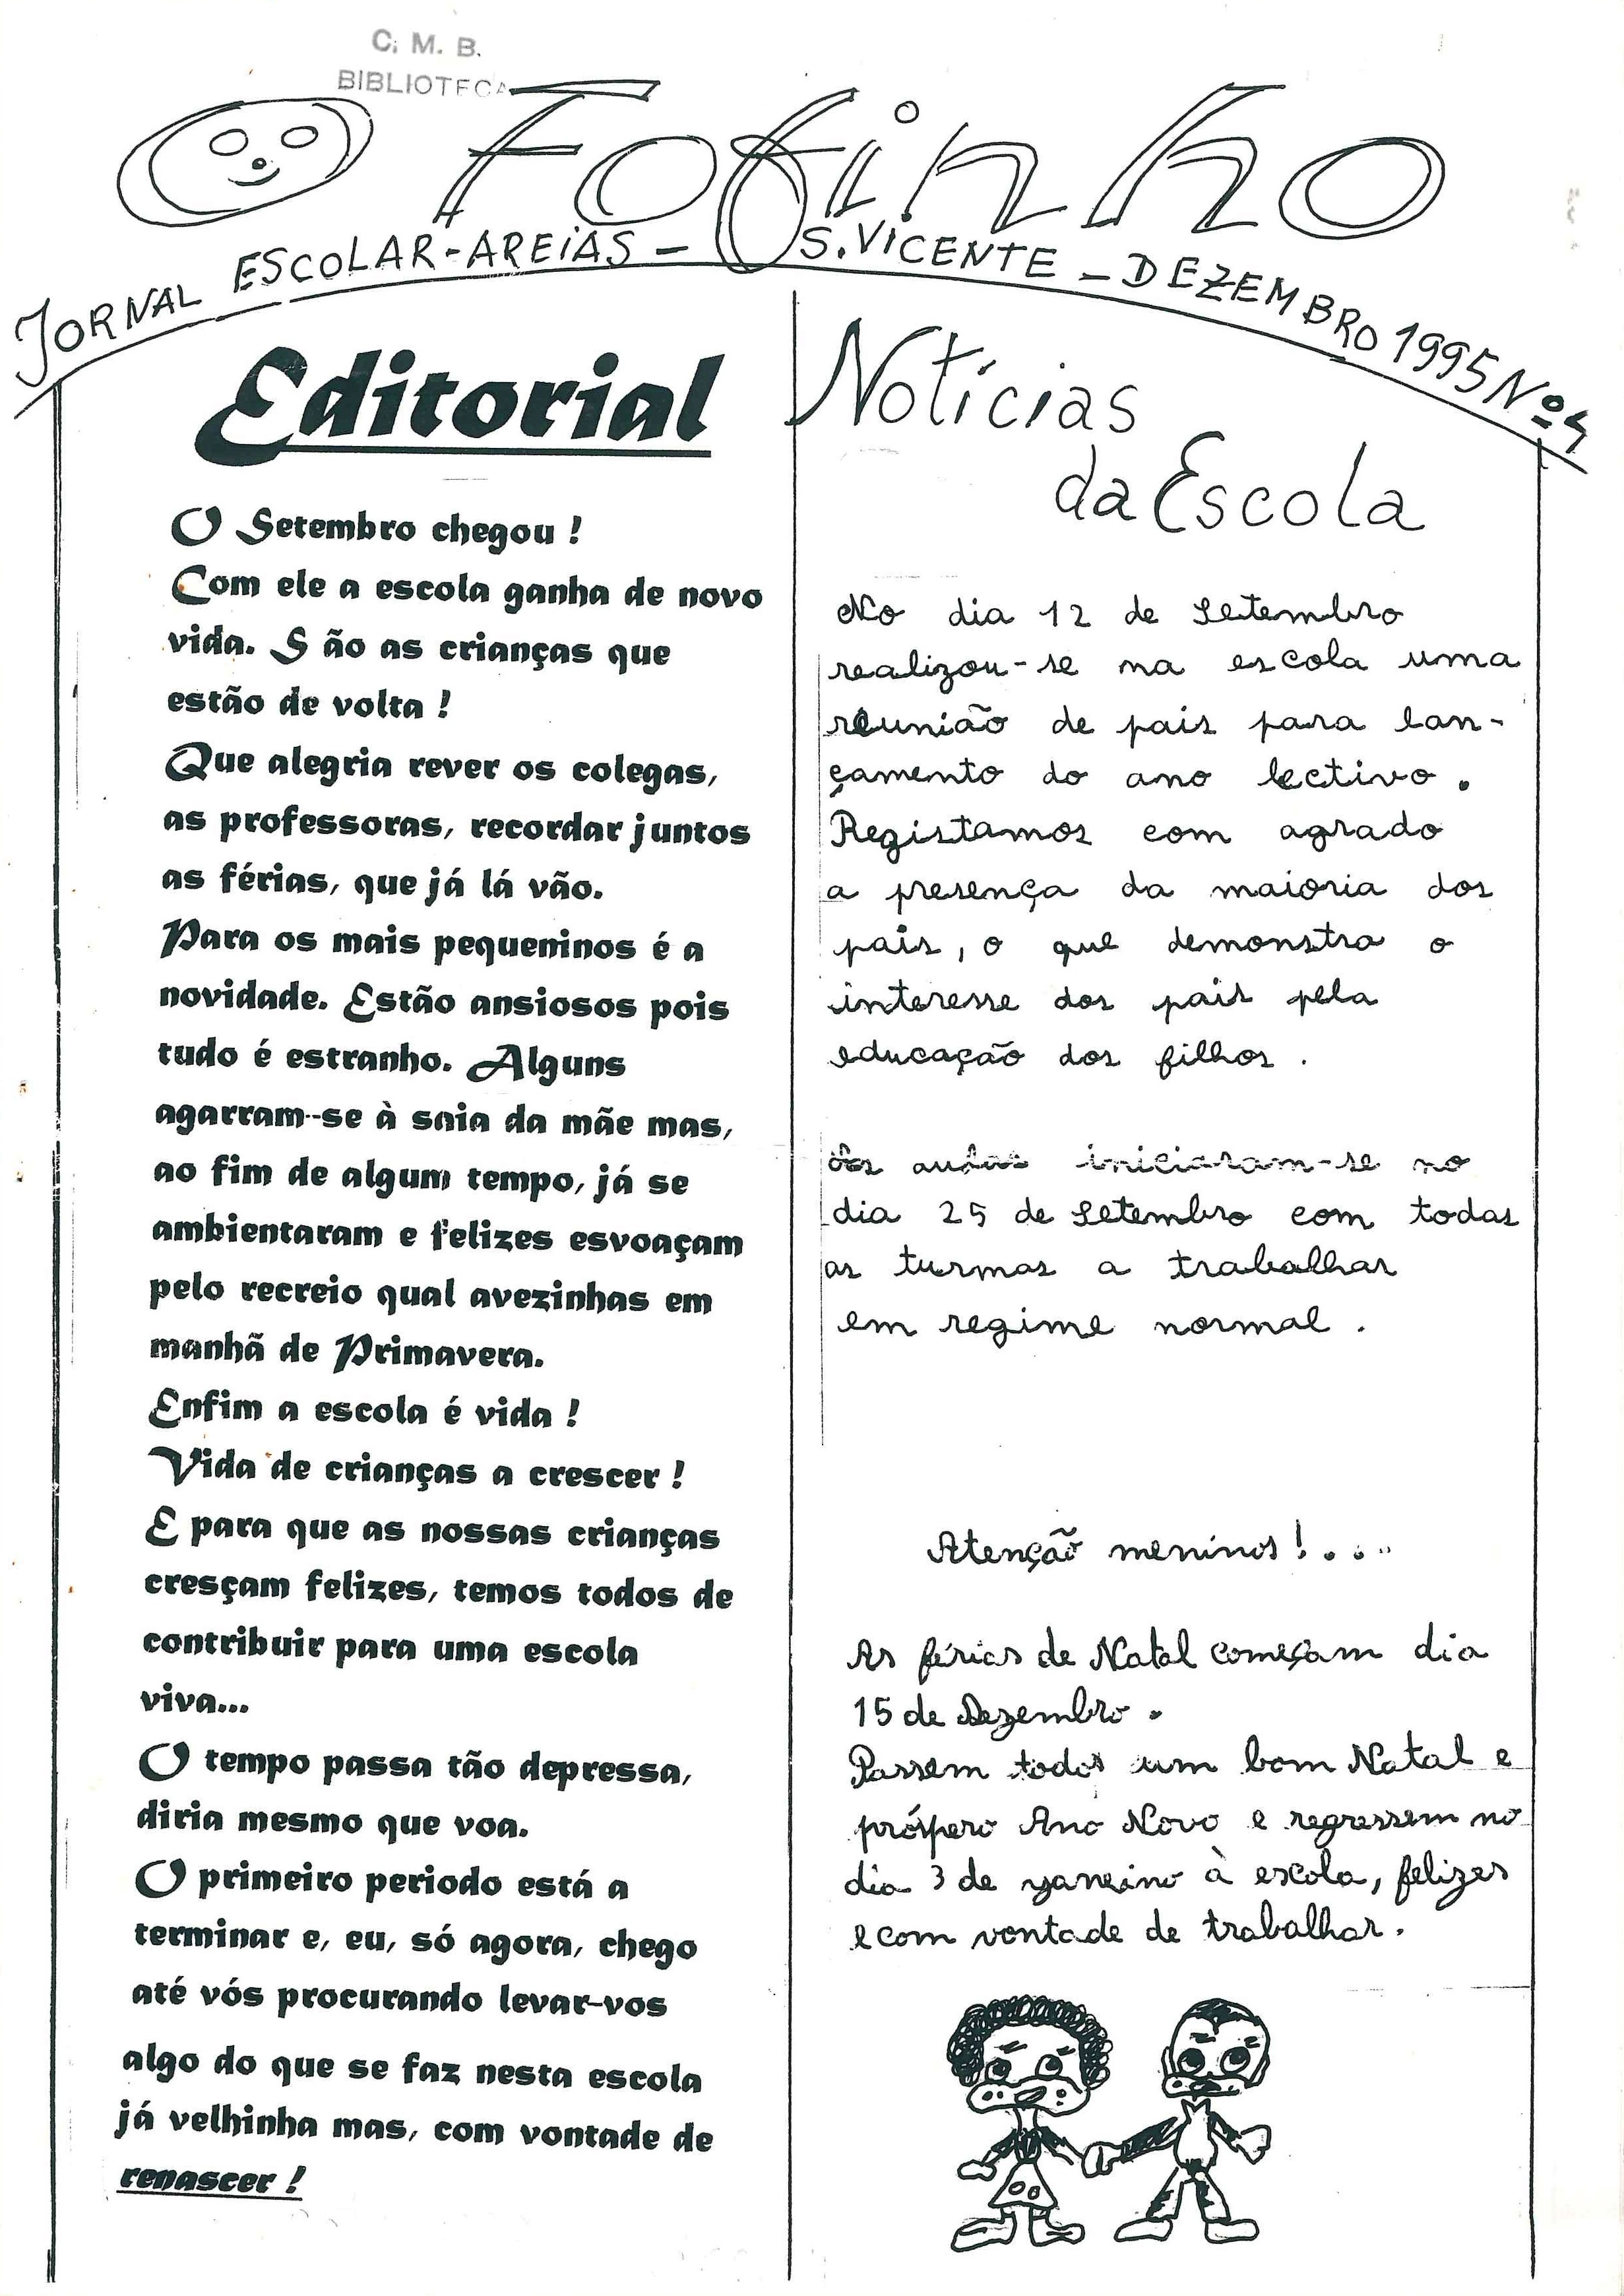 C. M. B.
BIBLIOTECA
O Fofinho
JORNAL ESCOLAR-AREIAS - S. VICENTE - DEZEMBRO 1995 Nº 4
Editorial
O Setembro chegou !
Com ele a escola ganha de novo
vida. S ão as crianças que
estão de volta !
Que alegria rever os colegas,
as professoras, recordar juntos
as férias, que já lá vão.
Para os mais pequeninos é a
novidade. Estão ansiosos pois
tudo é estranho. Alguns
agarram-se à saia da mãe mas,
ao fim de algum tempo, já se
ambientaram e felizes esvoaçam
pelo recreio qual avezinhas em
manhã de Primavera.
Enfim a escola é vida !
Vida de crianças a crescer !
E para que as nossas crianças
cresçam felizes, temos todos de
contribuir para uma escola
viva...
O tempo passa tão depressa,
diria mesmo que voa.
O primeiro periodo está a
terminar e, eu, só agora, chego
até vós procurando levar-vos
algo do que se faz nesta escola
já velhinha mas, com vontade de
renascer !
Notícias
da Escola
No dia 12 de Setembro
realizou-se na escola uma
reunião de pais para lan-
çamento do ano lectivo.
Registamos com agrado
a presença da maioria dos
pais, o que demonstra o
interesse dos pais pela
educação dos filhos.
As aulas iniciaram-se no
dia 25 de Setembro com todas
as turmas a trabalhar
em regime normal.
Atenção meninos!...
As férias de Natal começam dia
15 de Dezembro.
Passem todos um bom Natal e
próspero Ano Novo e regressem no
dia 3 de janeiro à escola, felizes
e com vontade de trabalhar.